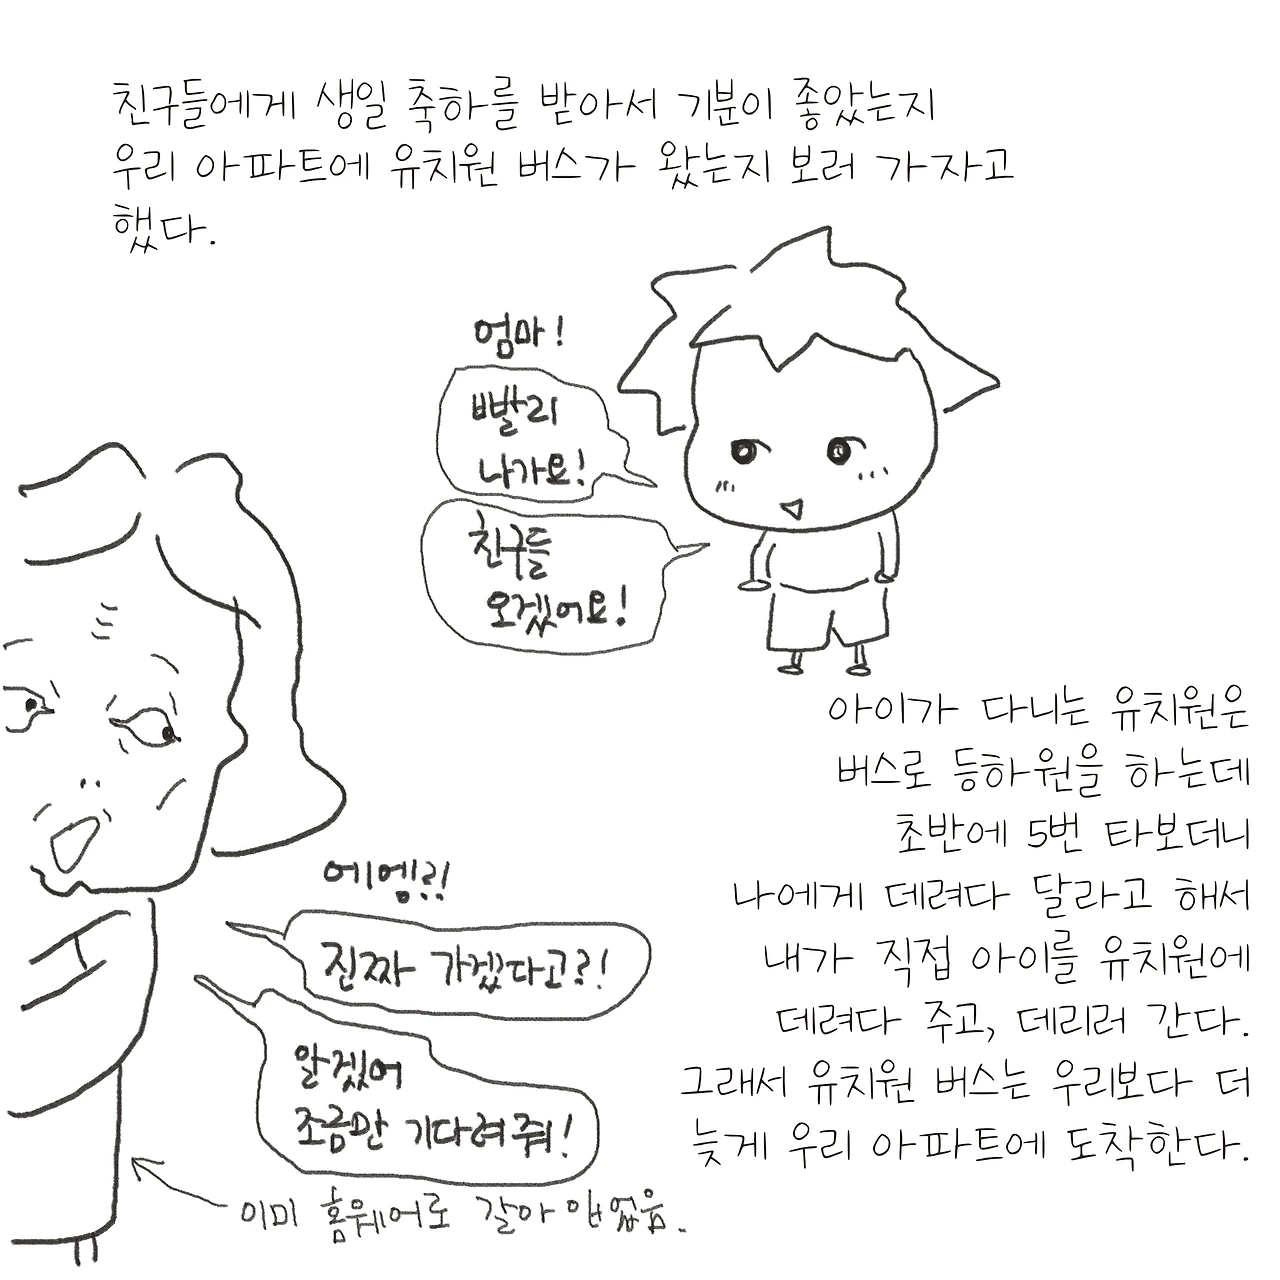 친구들에게 생일 축하를 받아서 기분이 좋았는지
우리 아파트에 유치원 버스가 왔는지 보러 가자고
했다.
엄마!
빨리
나가요!
친구들
오겠어요!
아이가 다니는 유치원은
버스로 등하원을 하는데
초반에 5번 타보더니
나에게 데려다 달라고 해서
내가 직접 아이를 유치원에
데려다 주고, 데리러 간다.
그래서 유치원 버스는 우리보다 더
늦게 우리 아파트에 도착한다.
에엥?!
진짜 가겠다고?!
알겠어
조금만 기다려줘!
이미 홈웨어로 갈아 입었음.